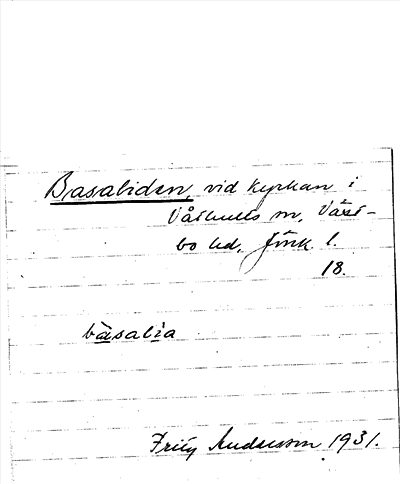 Basaliden, vid kyrkan i
Våthults sn, Väst-
bo hd, Jönk l.
18.
bàsalia
Fritz Andersson 1931.